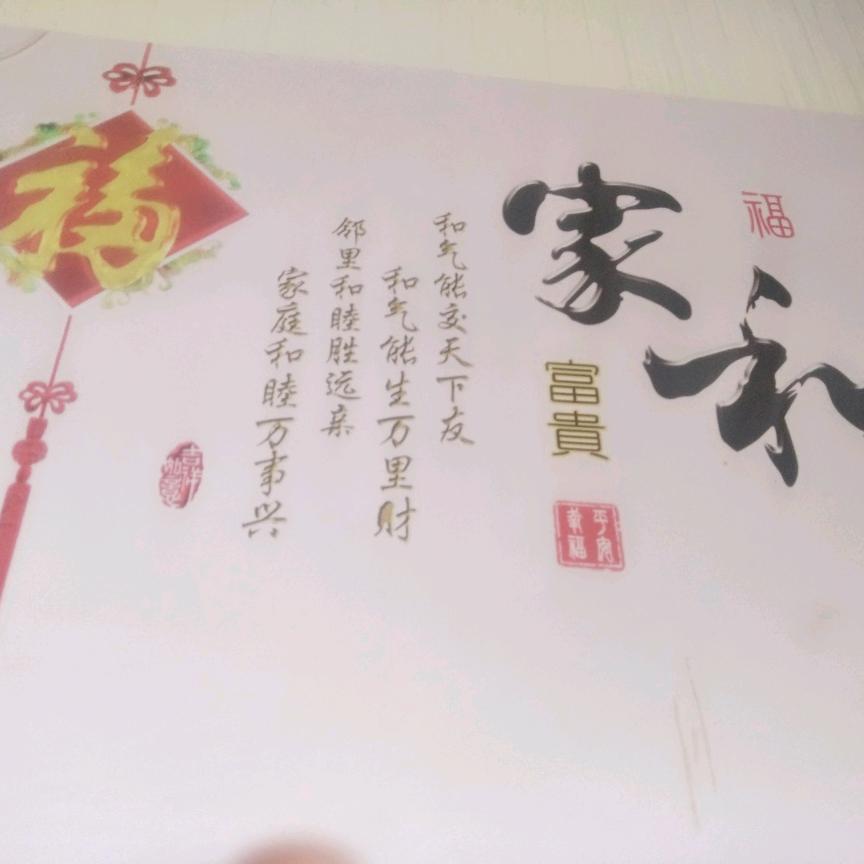 福
家和
富貴
平安
幸福
和气能交天下友
和气能生万里财
邻里和睦胜远亲
家庭和睦万事兴
吉祥
如意
福